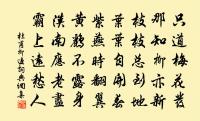 只道梅花發
那知柳亦新
枝枝總到地
葉葉自開春
紫燕時翻翼
黃鸝不露身
漢南應老盡
霸上遠愁人
杜甫柳邊詞典網集